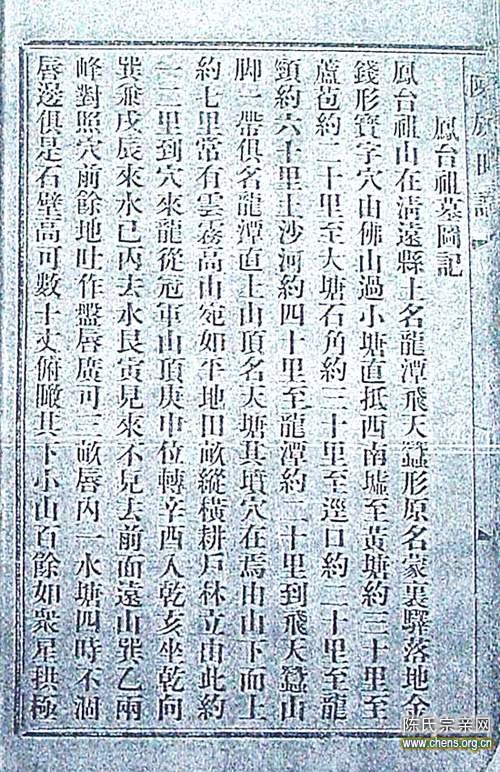 鳳台祖墓圖記
鳳台祖山在淸遠縣土名龍潭飛天蠶形原名蒙裏驛落地金
錢形寶字穴由佛山過小塘直抵西南墟至黃塘約三十里至
蘆苞約二十里至大塘石角約三十里至逕口約二十里至龍
頸約六十里上沙河約四十里至龍潭約二十里到飛天蠶山
脚一帶俱名龍潭直上山頂名天塘其墳穴在焉由山下而上
約七里常有雲霧高山宛如平地田畝縱橫耕戶林立由此約
一二里到穴來龍從冠軍山頂庚申位轉辛酉入乾亥坐乾向
巽兼戌辰來水巳丙去水艮寅見來不見去前面遠山巽乙兩
峰對照穴前餘地吐作盤唇廣可三畝唇內一水塘四時不涸
唇邊俱是石壁高可數十丈俯瞰其下小山百餘如衆星拱極
陈氏宗亲网
www.chens.org.cn